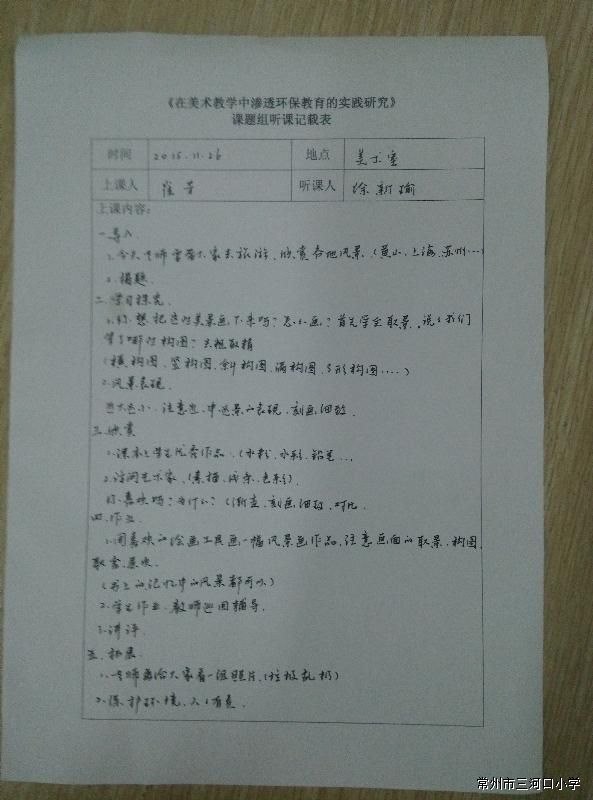 《在美术教学中渗透环保教育的实践研究》
课题组听课记载表
时间 2015.11.26 地点 美术室
上课人 崔芳 听课人 徐新瑜
上课内容:
一.导入
1.今天老师要带大家去旅游,欣赏各地风景.(黄山、上海、苏州…)
2.揭题.
二.学习探究.
1.你想把这些美景画下来吗?怎么画?首先学会取景,说说我们
学了哪些构图?去粗取精
(横构图、竖构图、斜构图、满构图、S形构图....)
2.风景表现.
近大远小,注意近、中远景的表现,刻画细致.
三.欣赏
1.课本上学生优秀作品.(水粉,水彩,铅笔...
2.访问艺术家.(素描、线条、色彩).
你喜欢吗?为什么?(渐变,刻画细致,对比.
四.作业.
1.用喜欢的绘画工具画一幅风景画作品,注意画面的取景、构图,
取舍
(书上的记忆中的风景都可以)
2.学生作业、教师巡回辅导.
3.讲评.
五.拓展.
1.老师再给大家看一组照片.(垃圾乱扔)
2.保护环境,人人有责.
常州市三河口小学